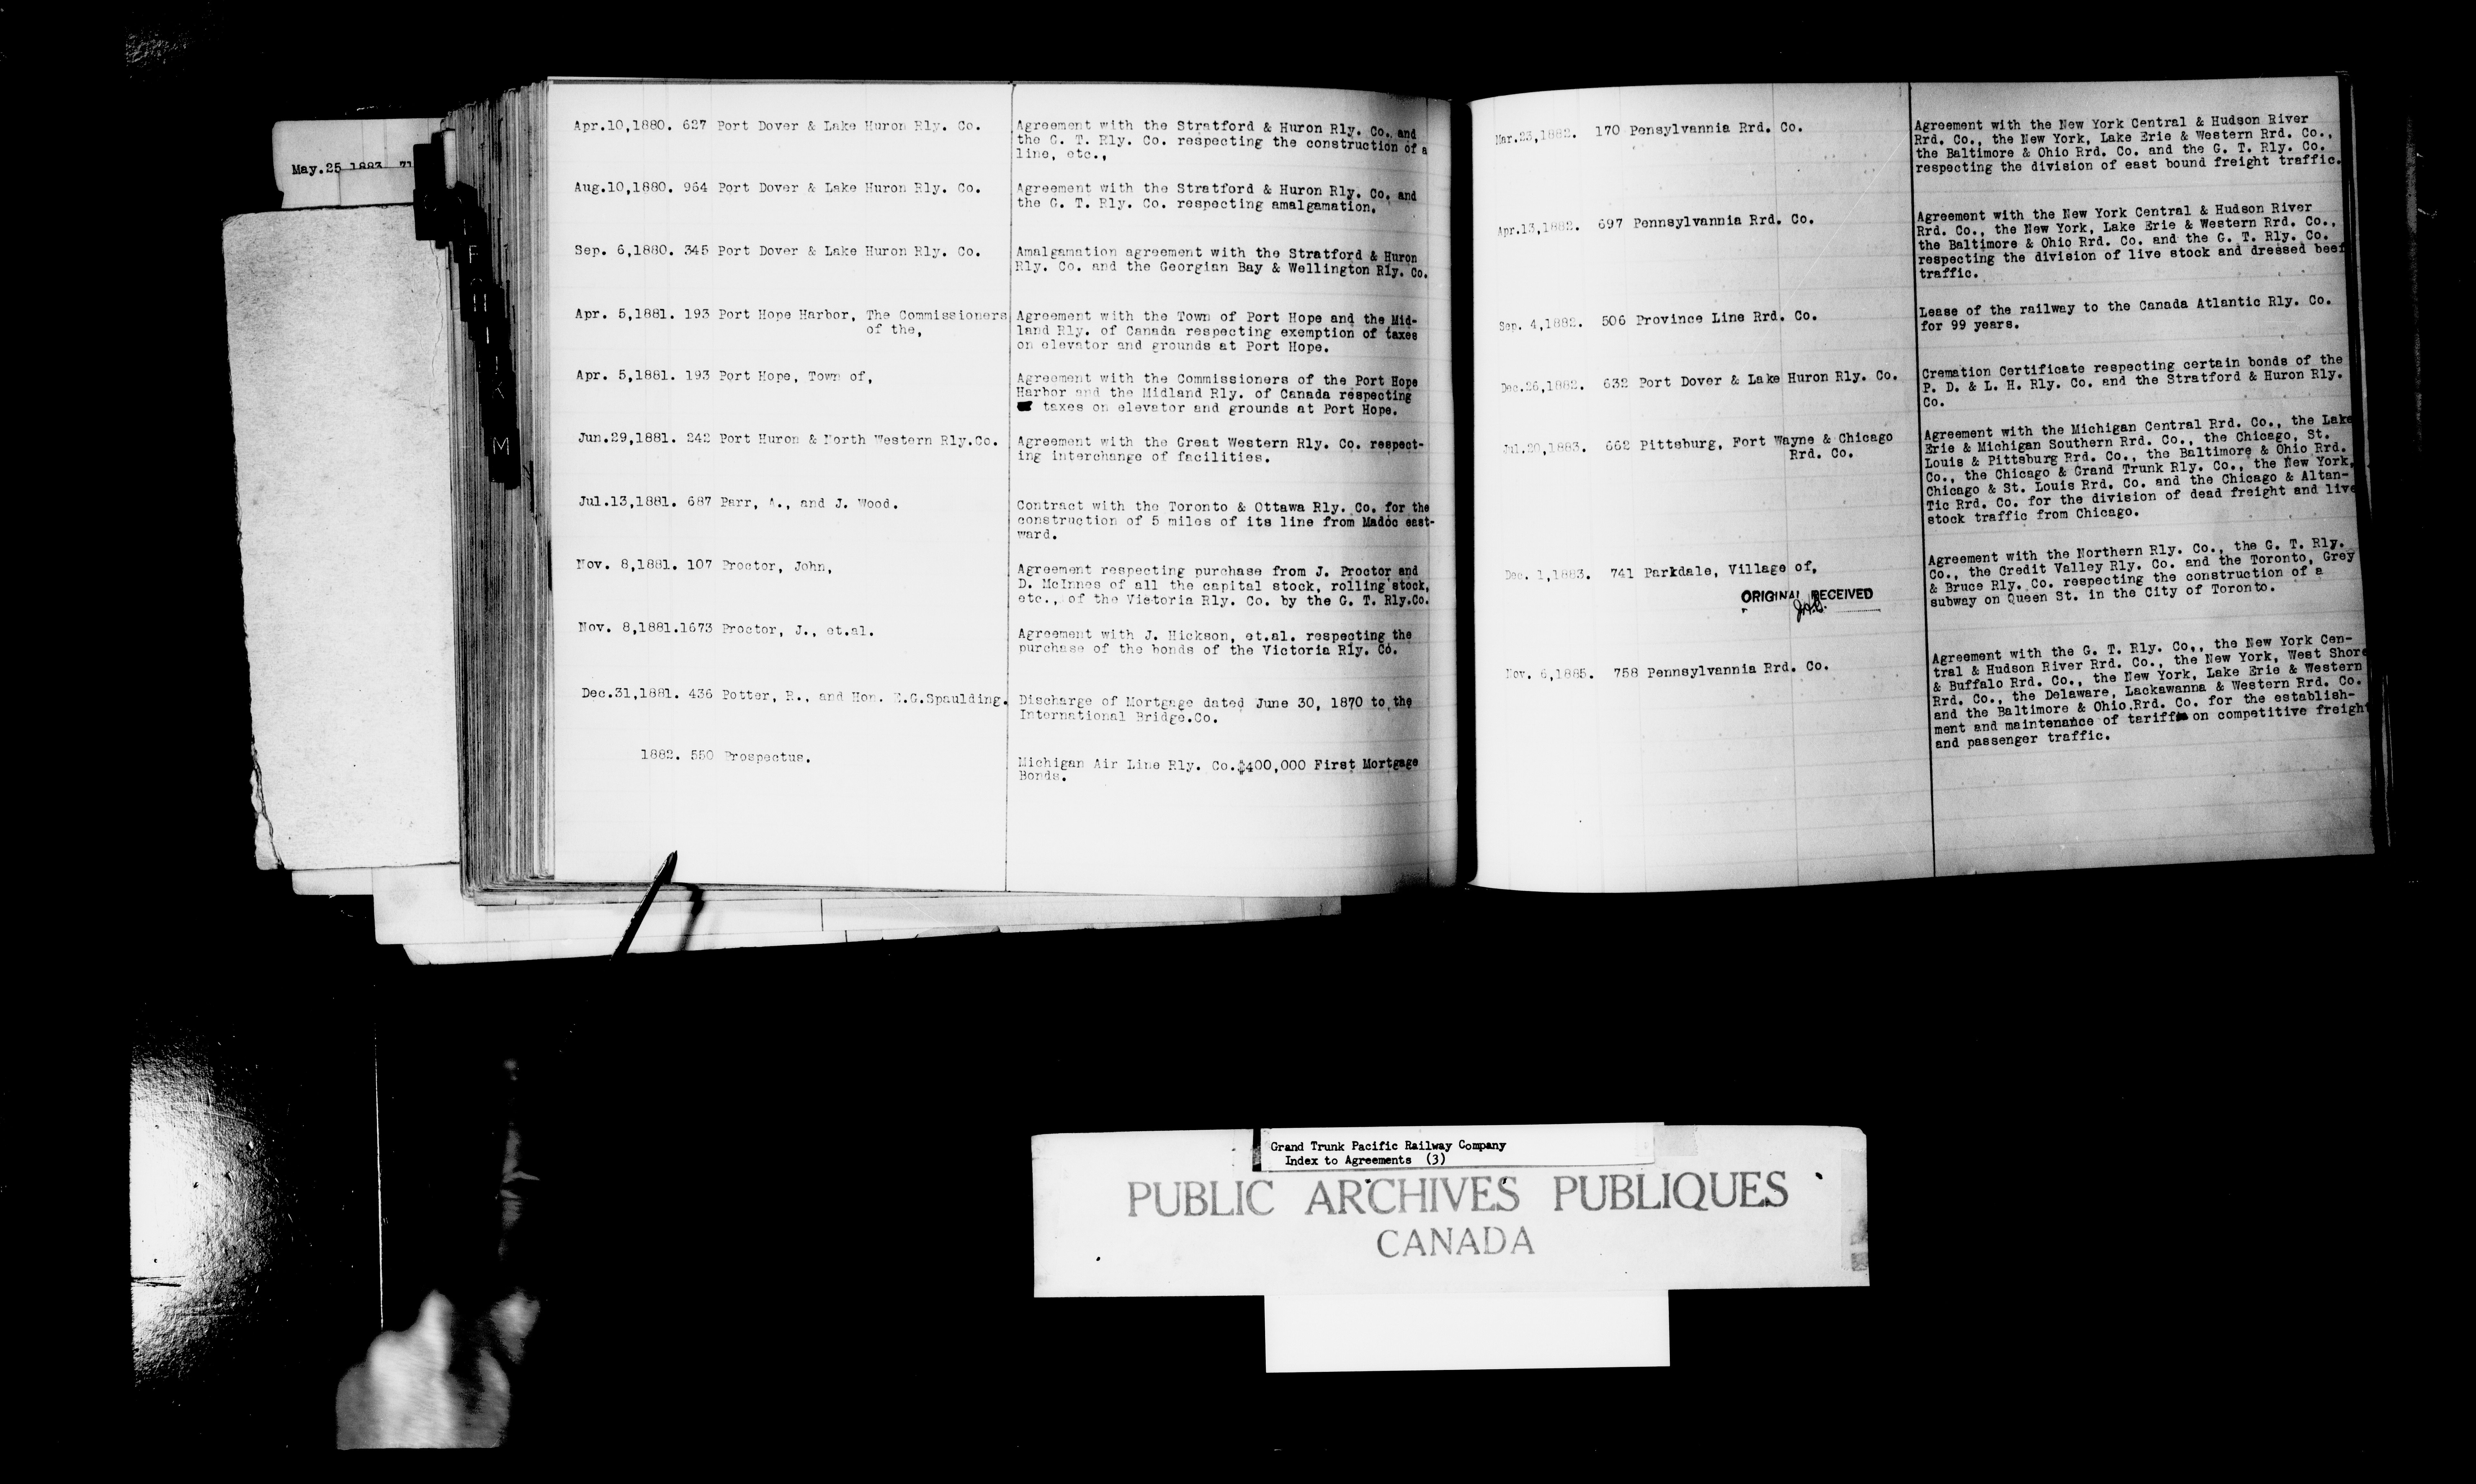 May.25 1883 71
F
M
Apr.10,1880. 627 Port Dover & Lake Huron Rly. Co. Agreement with the Stratford & Huron Rly. Co. and
the G. T. Rly. Co. respecting the construction of a
line, etc.,
Aug.10,1880. 964 Port Dover & Lake Huron Rly. Co. Agreement with the Stratford & Huron Rly. Co. and
the G. T. Rly. Co. respecting amalgamation.
Sep. 6,1880. 345 Port Dover & Lake Huron Rly. Co. Amalgamation agreement with the Stratford & Huron
Rly. Co. and the Georgian Bay & Wellington Rly. Co.
Apr. 5,1881. 193 Port Hope Harbor, The Commissioners Agreement with the Town of Port Hope and the Mid-
of the, land Rly. of Canada respecting exemption of taxes
on elevator and grounds at Port Hope.
Apr. 5,1881. 193 Port Hope, Town of, Agreement with the Commissioners of the Port Hope
Harbor and the Midland Rly. of Canada respecting
taxes on elevator and grounds at Port Hope.
Jun.29,1881. 242 Port Huron & North Western Rly.Co. Agreement with the Great Western Rly. Co. respect-
ing interchange of facilities.
Jul.13,1881. 687 Parr, A., and J. Wood. Contract with the Toronto & Ottawa Rly. Co. for the
construction of 5 miles of its line from Madoc east-
ward.
Nov. 8,1881. 107 Proctor, John, Agreement respecting purchase from J. Proctor and
D. McInnes of all the capital stock, rolling stock,
etc., of the Victoria Rly. Co. by the G. T. Rly.Co.
Nov. 8,1881.1673 Proctor, J., et.al. Agreement with J. Hickson, et.al. respecting the
purchase of the bonds of the Victoria Rly. Co.
Dec.31,1881. 436 Potter, R., and Hon. E.G.Spaulding. Discharge of Mortgage dated June 30, 1870 to the
International Bridge.Co.
1882. 550 Prospectus. Michigan Air Line Rly. Co.$400,000 First Mortgage
Bonds.
Mar.23,1882. 170 Pensylvannia Rrd. Co. Agreement with the New York Central & Hudson River
Rrd. Co., the New York, Lake Erie & Western Rrd. Co.,
the Baltimore & Ohio Rrd. Co. and the G. T. Rly. Co.
respecting the division of east bound freight traffic.
Apr.13,1882. 697 Pennsylvannia Rrd. Co. Agreement with the New York Central & Hudson River
Rrd. Co., the New York, Lake Erie & Western Rrd. Co.,
the Baltimore & Ohio Rrd. Co. and the G. T. Rly. Co.
respecting the division of live stock and dressed beef
traffic.
Sep. 4,1882. 506 Province Line Rrd. Co. Lease of the railway to the Canada Atlantic Rly. Co.
for 99 years.
Dec.26,1882. 632 Port Dover & Lake Huron Rly. Co. Cremation Certificate respecting certain bonds of the
P. D. & L. H. Rly. Co. and the Stratford & Huron Rly.
Co.
Jul.20,1883. 662 Pittsburg, Fort Wayne & Chicago Agreement with the Michigan Central Rrd. Co., the Lake
Rrd. Co. Erie & Michigan Southern Rrd. Co., the Chicago, St.
Louis & Pittsburg Rrd. Co., the Baltimore & Ohio Rrd.
Co., the Chicago & Grand Trunk Rly. Co., the New York,
Chicago & St. Louis Rrd. Co. and the Chicago & Altan-
Tic Rrd. Co. for the division of dead freight and live
stock traffic from Chicago.
Dec. 1,1883. 741 Parkdale, Village of, Agreement with the Northern Rly. Co., the G. T. Rly.
Co., the Credit Valley Rly. Co. and the Toronto, Grey
& Bruce Rly. Co. respecting the construction of a
subway on Queen St. in the City of Toronto.
ORIGINAL RECEIVED
Nov. 6,1885. 758 Pennsylvannia Rrd. Co. Agreement with the G. T. Rly. Co., the New York Cen-
tral & Hudson River Rrd. Co., the New York, West Shore
& Buffalo Rrd. Co., the New York, Lake Erie & Western
Rrd. Co., the Delaware, Lackawanna & Western Rrd. Co.
and the Baltimore & Ohio.Rrd. Co. for the establish-
ment and maintenance of tariff on competitive freight
and passenger traffic.
Grand Trunk Pacific Railway Company
Index to Agreements (3)
PUBLIC ARCHIVES PUBLIQUES
CANADA